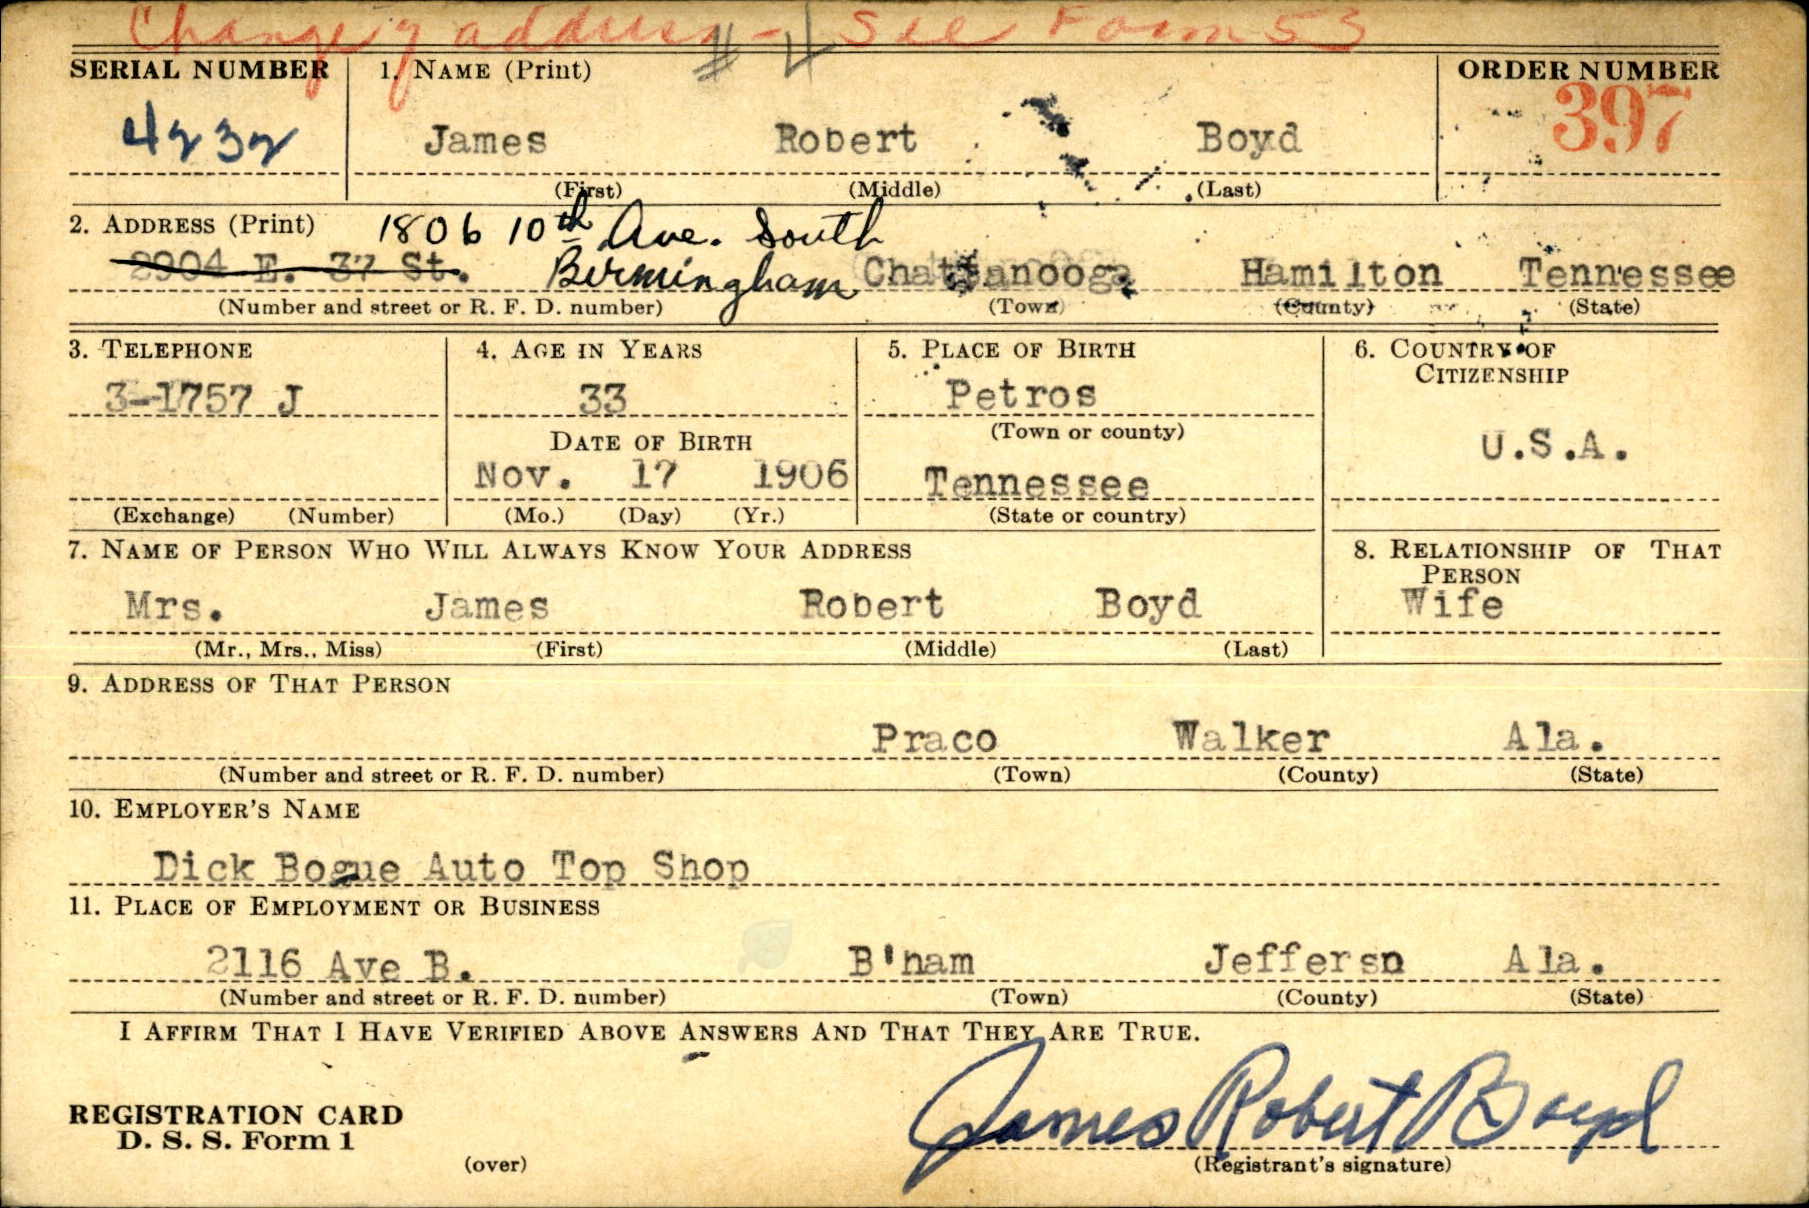 Change of address - See Form 53
# 4
SERIAL NUMBER 1. NAME (Print) ORDER NUMBER
4232 James Robert Boyd 397
(First) (Middle) (Last)
2. ADDRESS (Print) 1806 10th Ave. South
2904 E. 37 St. Birmingham Chattanooga Hamilton Tennessee
(Number and street or R. F. D. number) (Town) (County) (State)
3. TELEPHONE 4. AGE IN YEARS 5. PLACE OF BIRTH 6. COUNTRY OF
CITIZENSHIP
3-1757 J 33 Petros
(Town or county)
DATE OF BIRTH U.S.A.
Nov. 17 1906 Tennessee
(Exchange) (Number) (Mo.) (Day) (Yr.) (State or country)
7. NAME OF PERSON WHO WILL ALWAYS KNOW YOUR ADDRESS 8. RELATIONSHIP OF THAT
PERSON
Mrs. James Robert Boyd Wife
(Mr., Mrs., Miss) (First) (Middle) (Last)
9. ADDRESS OF THAT PERSON
Praco Walker Ala.
(Number and street or R. F. D. number) (Town) (County) (State)
10. EMPLOYER'S NAME
Dick Bogue Auto Top Shop
11. PLACE OF EMPLOYMENT OR BUSINESS
2116 Ave B. B'ham Jeffersn Ala.
(Number and street or R. F. D. number) (Town) (County) (State)
I AFFIRM THAT I HAVE VERIFIED ABOVE ANSWERS AND THAT THEY ARE TRUE.
James Robert Boyd
REGISTRATION CARD
D. S. S. Form 1
(over) (Registrant's signature)